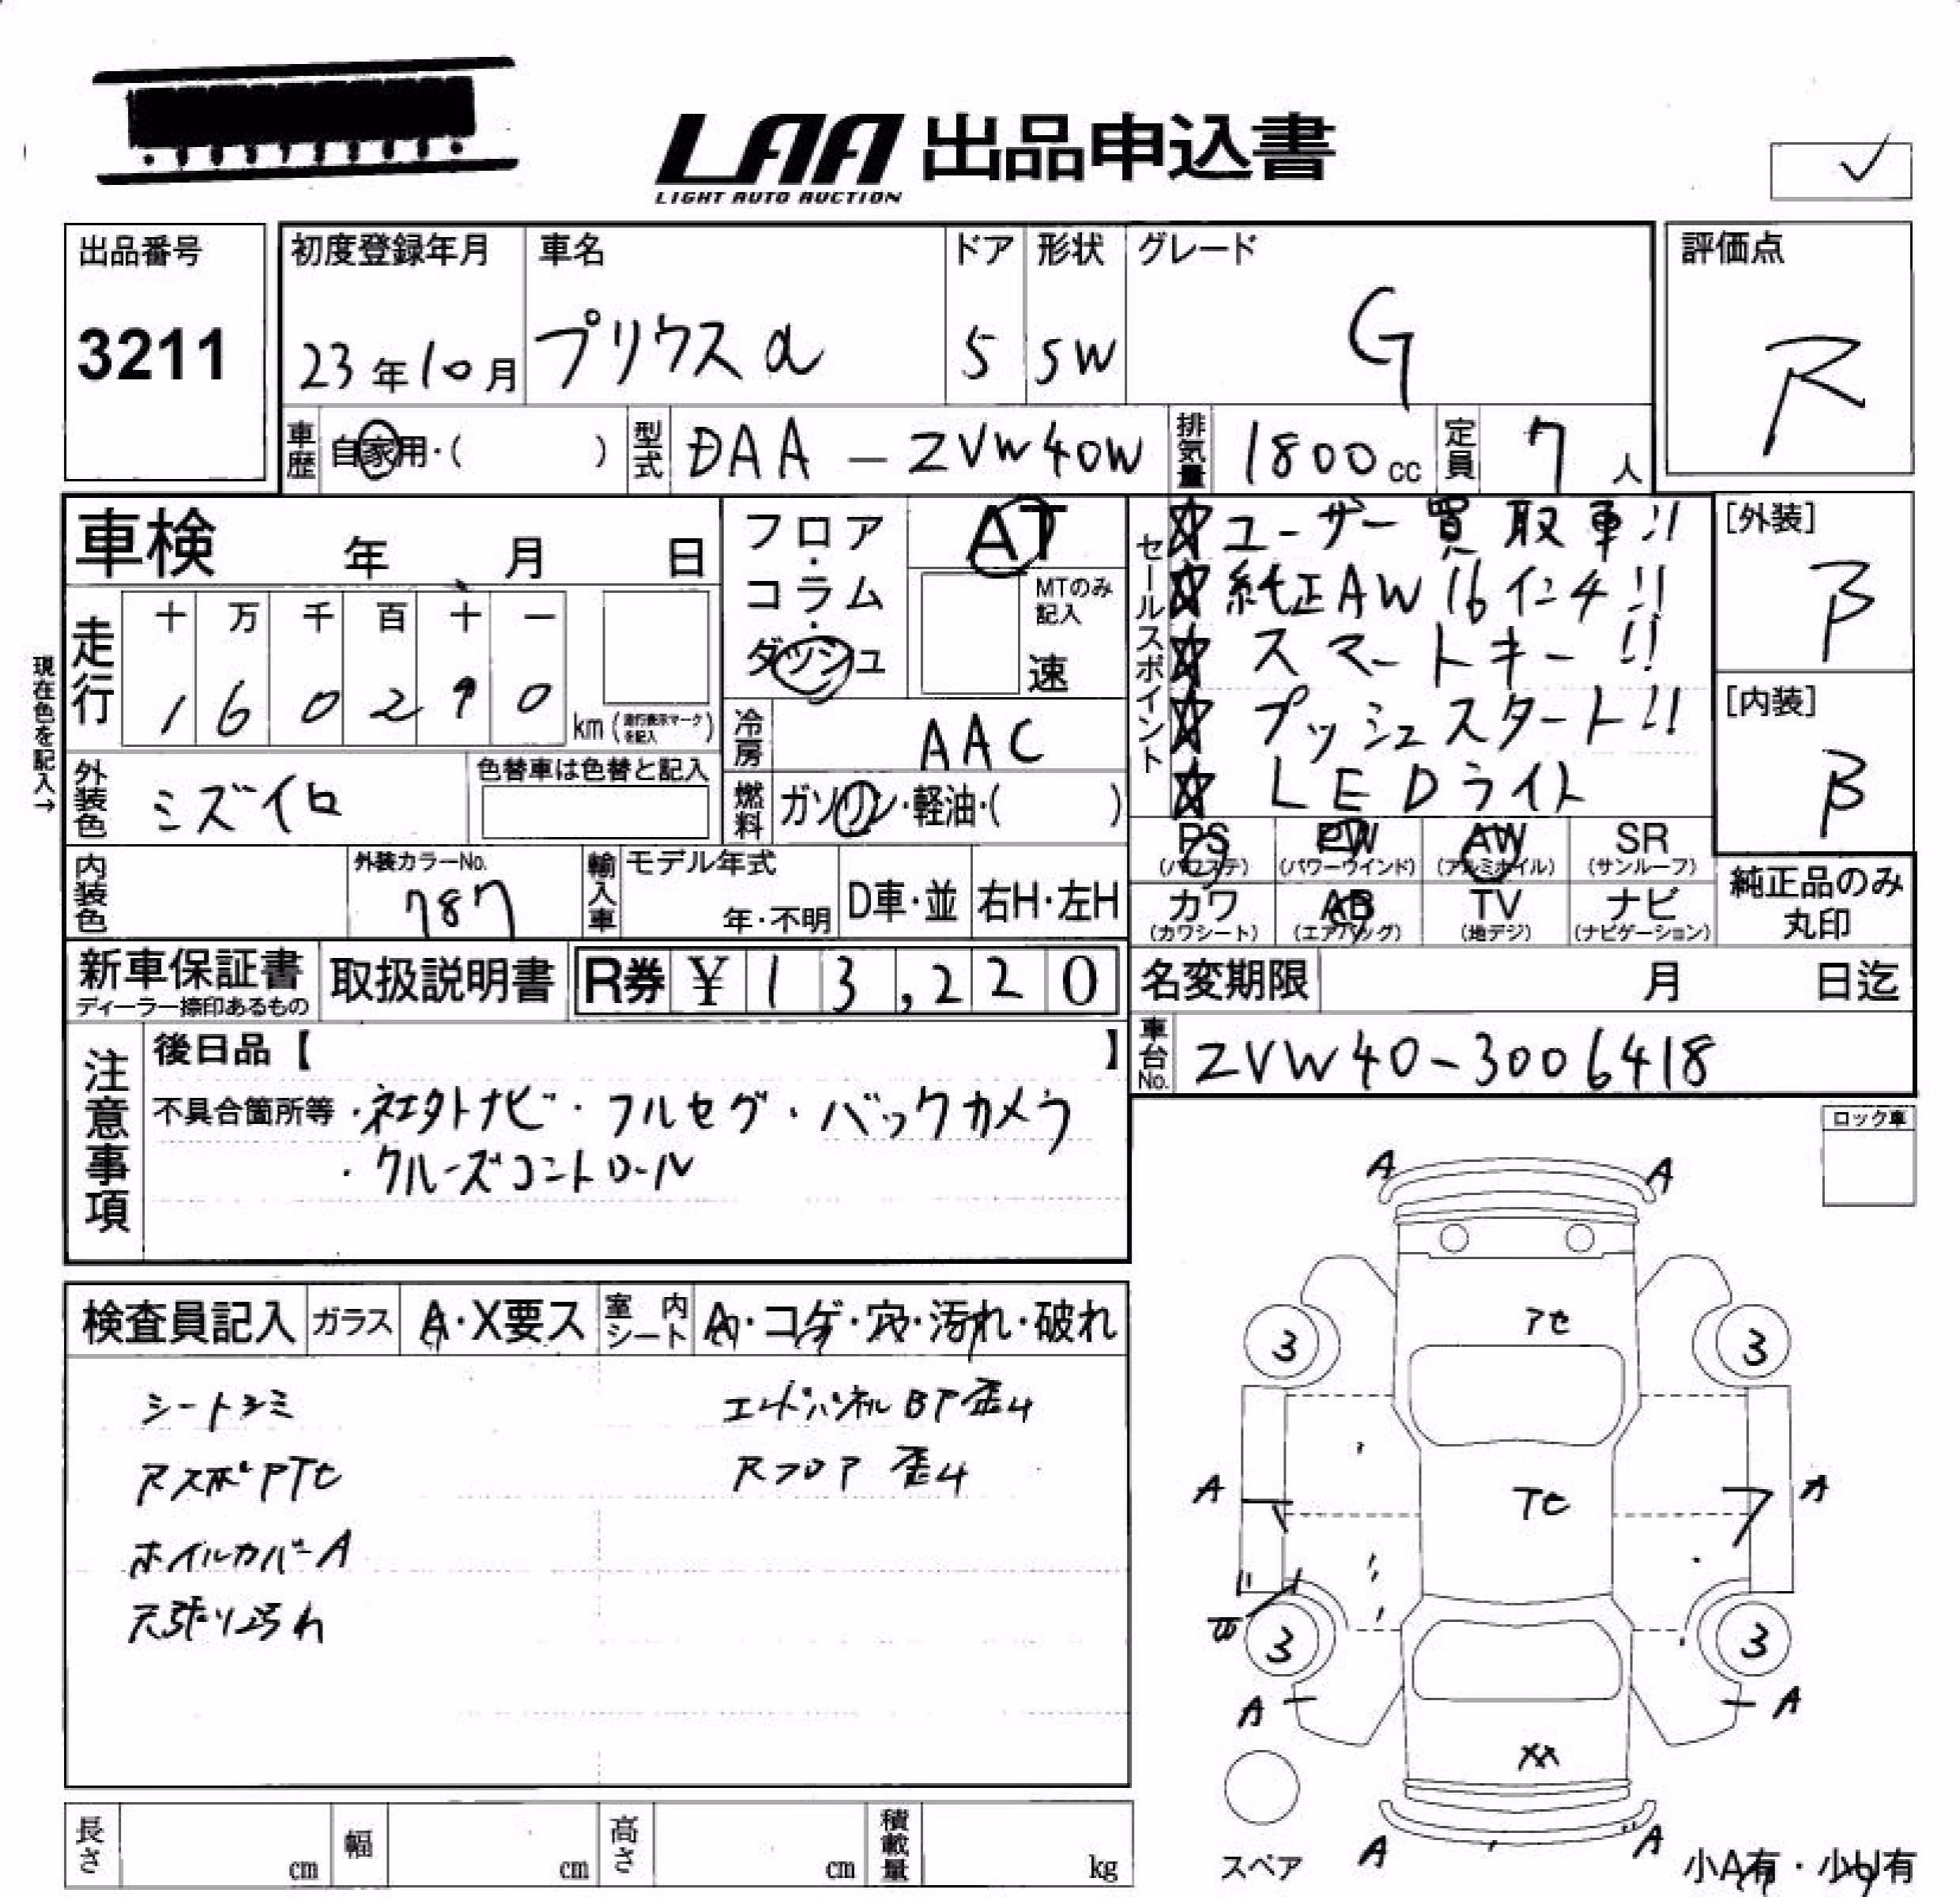 LAA 出品申込書
LIGHT AUTO AUCTION
出品番号 初度登録年月 車名 ドア 形状 グレード 評価点
3211 23年10月 プリウスα 5 SW G R
車歴 自家用・( ) 型式 DAA-ZVW40W 排気量 1800cc 定員 7人
車検 年 月 日
フロア・コラム・ダッシュ
AT
MTのみ記入
速
セールスポイント
☆ユーザー買取車!!
☆純正AW16インチ!!
☆スマートキー!!
☆プッシュスタート!!
☆LEDライト
[外装]
B
[内装]
B
現在色を記入→
走行
十 万 千 百 十 一
1 6 0 2 9 0 km (走行表示マークを記入)
冷房 AAC
外装色 ミズイロ 色替車は色替と記入
燃料 ガソリン・軽油・( )
PS PW AW SR
(パワステ) (パワーウインド) (アルミホイル) (サンルーフ)
カワ AB TV ナビ
(カワシート) (エアバッグ) (地デジ) (ナビゲーション)
純正品のみ
丸印
内装色 外装カラーNo. 787 輸入車 モデル年式 年・不明 D車・並 右H・左H
新車保証書 取扱説明書 R券 ¥13,220 名変期限 月 日迄
ディーラー捺印あるもの
車台No. ZVW40-3006418
注意事項
後日品【 】
不具合箇所等・社外ナビ・フルセグ・バックカメラ
・クルーズコントロール
ロック車
検査員記入 ガラス A・X要ス 室内シート A・コゲ・穴・汚れ・破れ
シートシミ エンドパネルBP歪み
RスポPTヒ Rフロア 歪み
ホイルカバーA
天張り汚れ
A A
アセ
3 3
A A
Tヒ
3 3
A A
XX
A A
スペア
小A有・小U有
長さ cm 幅 cm 高さ cm 積載量 kg